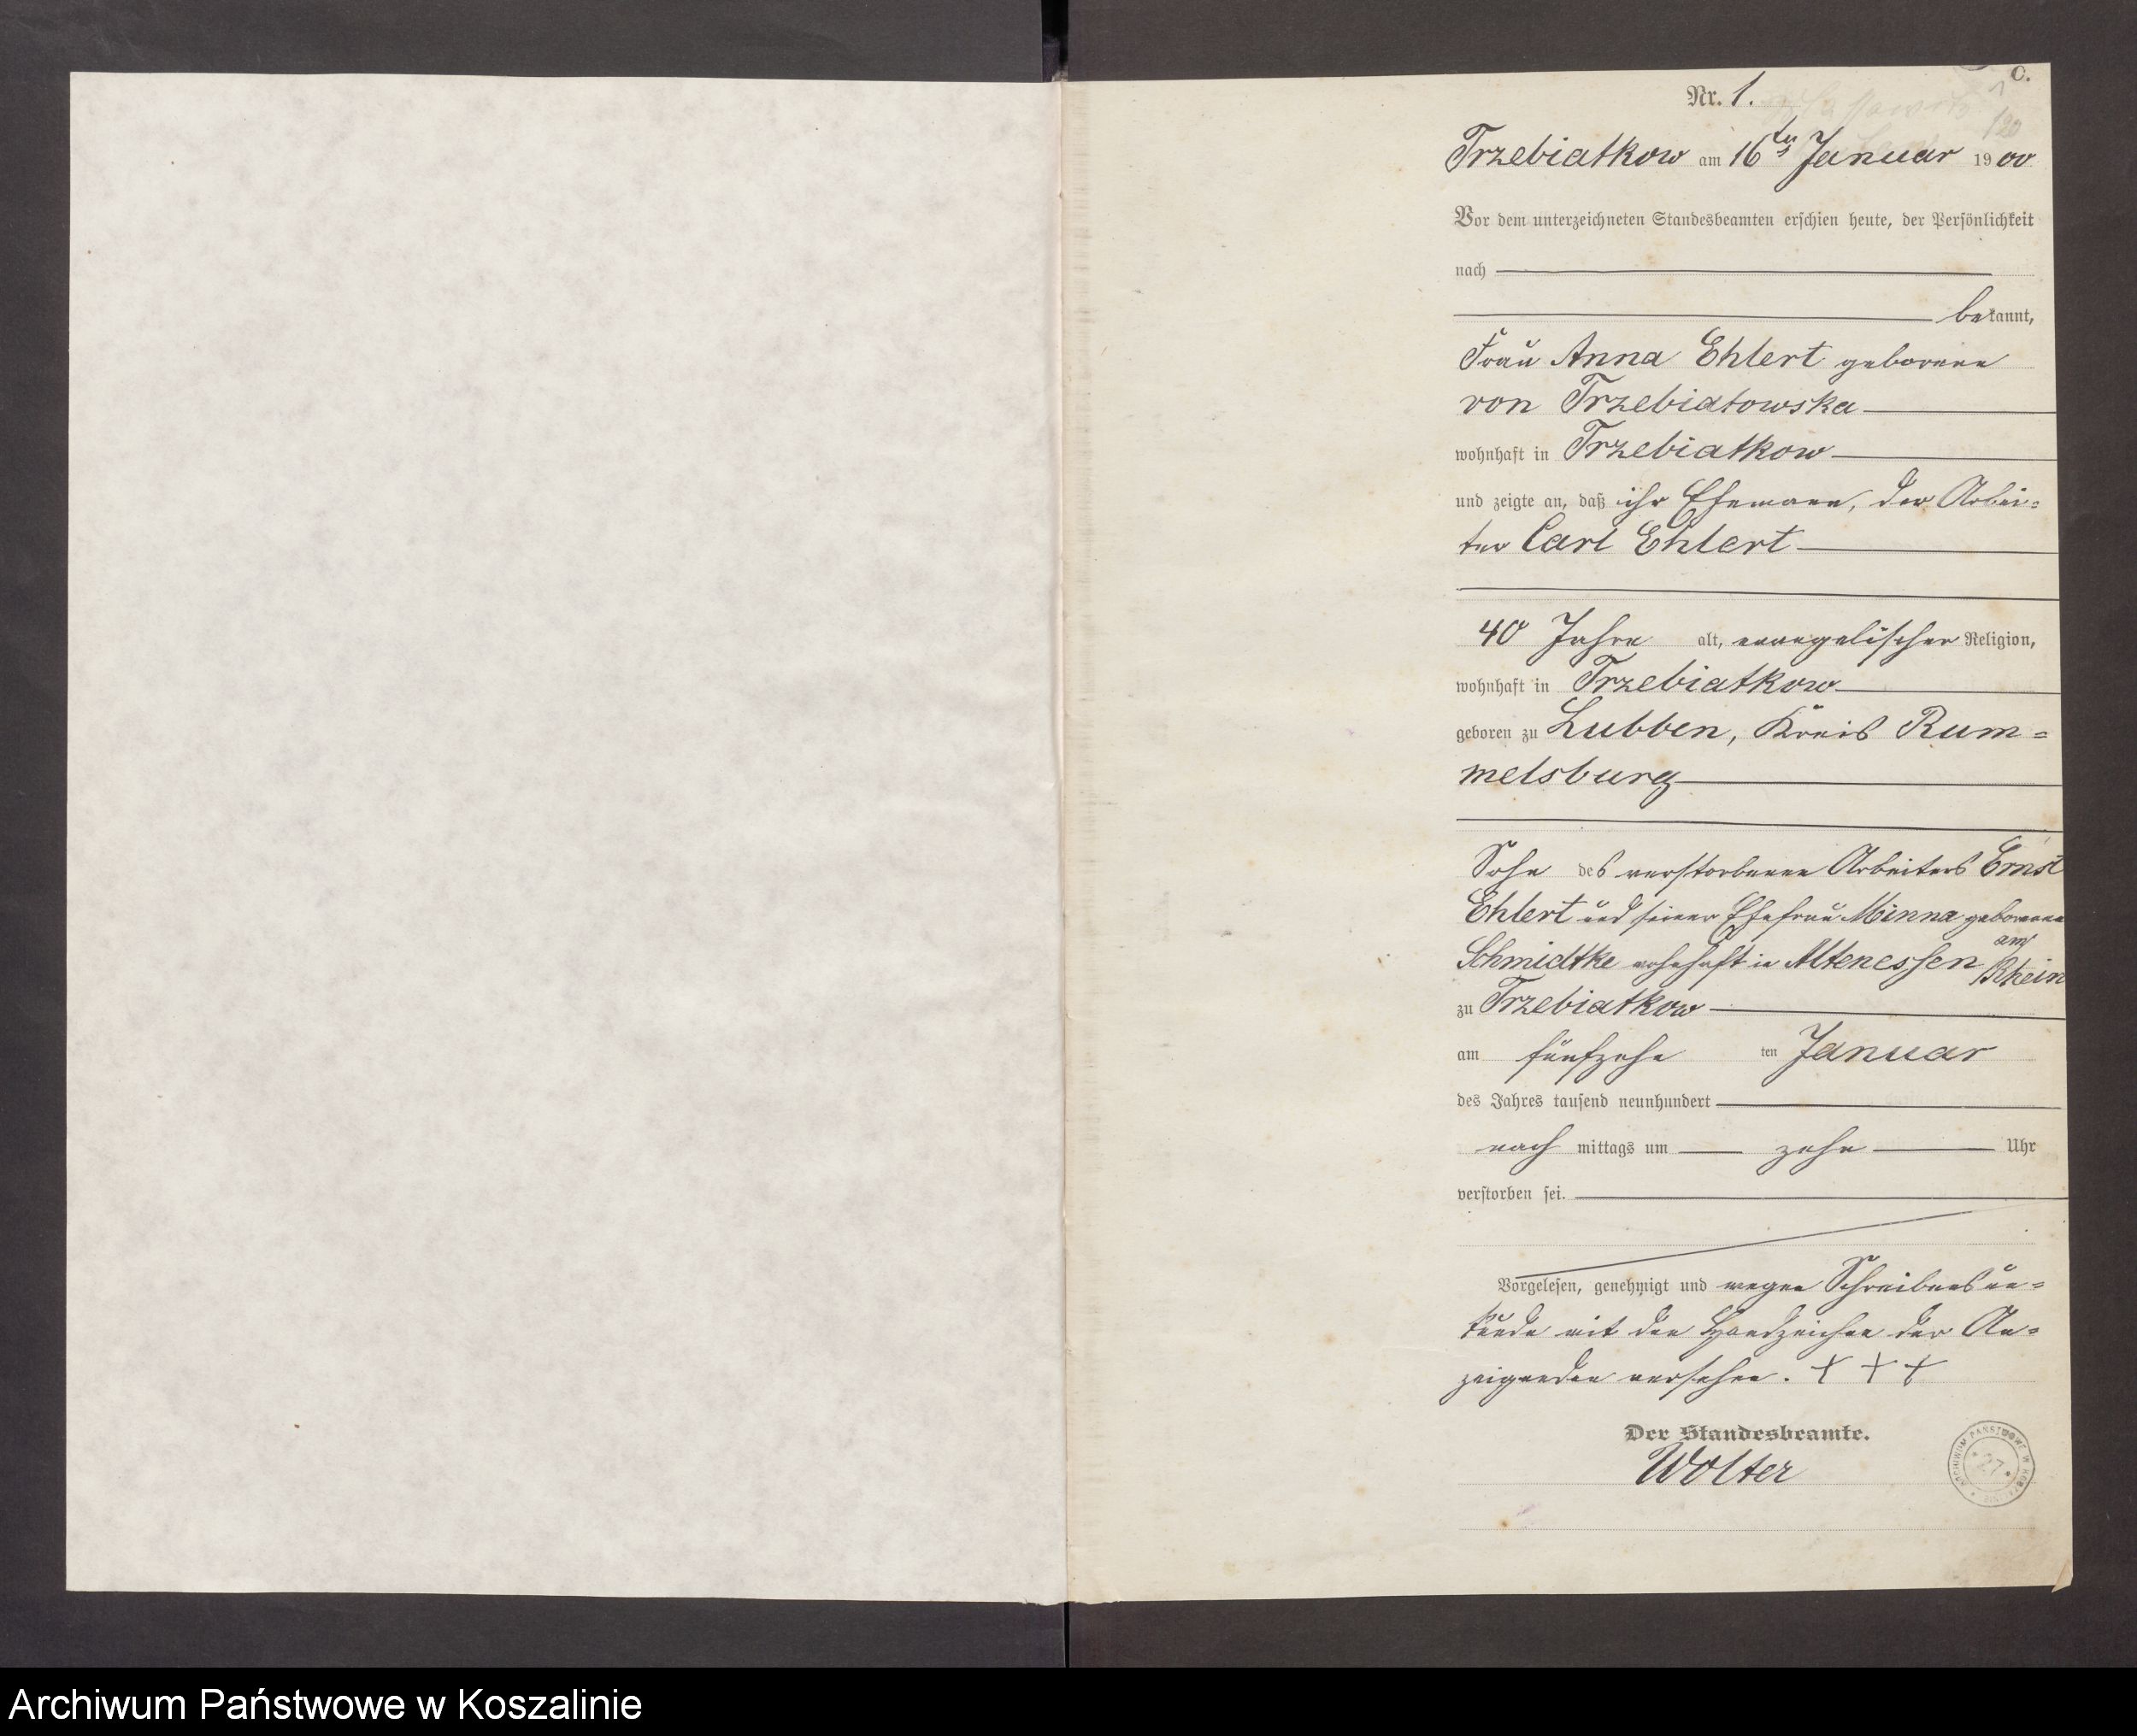 C.
Nr. 1.
Trzebiatkow am 16ten Januar 1900
Vor dem unterzeichneten Standesbeamten erschien heute, der Persönlichkeit
nach
bekannt,
Frau Anna Ehlert geborene
von Trzebiatowska
wohnhaft in Trzebiatkow
und zeigte an, daß ihr Ehemann, der Arbei=
ter Carl Ehlert
40 Jahre alt, evangelischer Religion,
wohnhaft in Trzebiatkow
geboren zu Lubben, Kreis Rum=
melsburg
Sohn des verstorbenen Arbeiters Ernst
Ehlert und seiner Ehefrau Minna geborenen
Schmidtke wohnhaft in Altenessen am Rhein
zu Trzebiatkow
am fünfzehn ten Januar
des Jahres tausend neunhundert
nach mittags um zehn Uhr
verstorben sei.
Vorgelesen, genehmigt und wegen Schreibensun=
kunde mit den Handzeichen der An=
zeigenden versehen. + + +
Der Standesbeamte.
Wolter
ARCHIWUM PAŃSTWOWE W
27
Archiwum Państwowe w Koszalinie